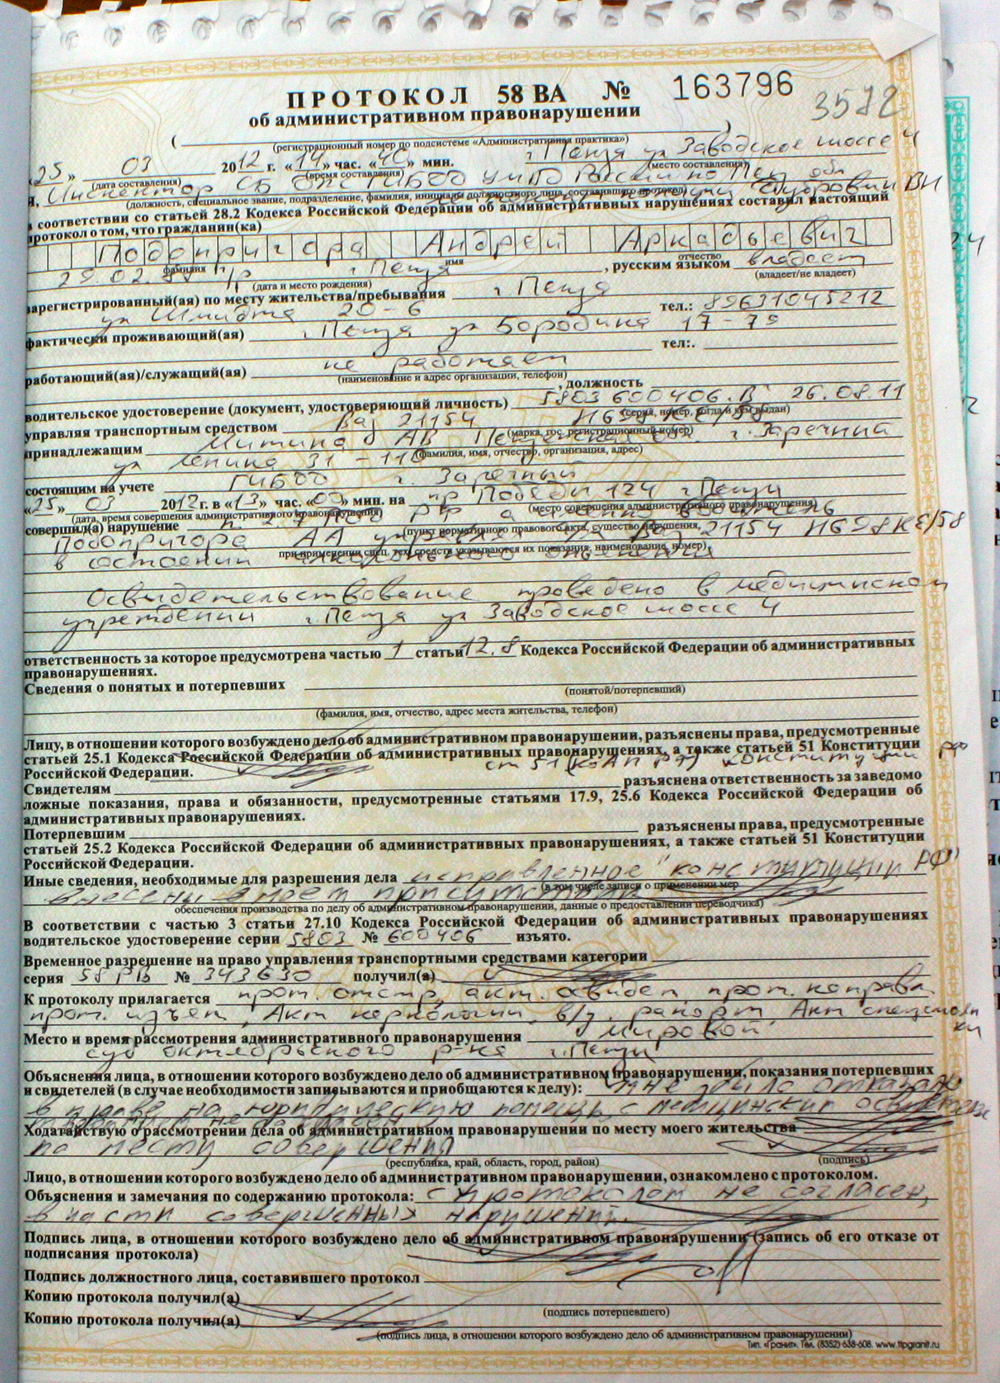 ПРОТОКОЛ 58 ВА № 163796
3572
об административном правонарушении
(регистрационный номер по подсистеме «Административная практика»)
«25» 03 2012 г. «14» час. «40» мин. г. Пенза ул Заводское шоссе 4
(дата составления) (время составления) (место составления)
Я, Инспектор СБ ДПС ГИБДД УМВД России по Пенз обл
(должность, специальное звание, подразделение, фамилия, инициалы должностного лица, составившего протокол)
в соответствии со статьей 28.2 Кодекса Российской Федерации об административных нарушениях составил настоящий
протокол о том, что гражданин(ка)
Подопригора Андрей Аркадьевич
фамилия имя отчество
29.02 г/р г. Пенза , русским языком владеет
(дата и место рождения) (владеет/не владеет)
зарегистрированный(ая) по месту жительства/пребывания г Пенза
ул Шмидта 20-6 тел.: 89631045212
фактически проживающий(ая) г. Пенза ул Бородина 17-79
тел:.
работающий(ая)/служащий(ая) не работает
(наименование и адрес организации, телефон)
, должность
водительское удостоверение (документ, удостоверяющий личность) 5803 600406. В 26.08.11
(серия, номер, когда и кем выдан)
управляя транспортным средством Ваз 21154
(марка, гос. регистрационный номер)
принадлежащим АВ г. Заречный
ул Ленина 31 - 110
(фамилия, имя, отчество, организация, адрес)
состоящим на учете ГИБДД г. Заречный
«25» 03 2012 г. в «13» час. «00» мин. на пр Победы 124 г Пенза
(дата, время совершения административного правонарушения) (место совершения административного правонарушения)
совершил(а) нарушение п. 2.7 ПДД РФ водитель
(пункт нормативного правового акта, существо нарушения,
Подопригора АА Ваз 21154 Н698КЕ/58
при применении спец. тех. средств указываются их показания, наименование, номер)
в состоянии алкогольного опьянения
Освидетельствование проведено в медицинском
учреждении г. Пенза ул Заводское шоссе 4
ответственность за которое предусмотрена частью 1 статьи 12.8 Кодекса Российской Федерации об административных
правонарушениях.
Сведения о понятых и потерпевших
(понятой/потерпевший)
(фамилия, имя, отчество, адрес места жительства, телефон)
Лицу, в отношении которого возбуждено дело об административном правонарушении, разъяснены права, предусмотренные
статьей 25.1 Кодекса Российской Федерации об административных правонарушениях, а также статьей 51 Конституции
Российской Федерации. ст 51 (КоАП РФ) конституции РФ
Свидетелям разъяснена ответственность за заведомо
ложные показания, права и обязанности, предусмотренные статьями 17.9, 25.6 Кодекса Российской Федерации об
административных правонарушениях.
Потерпевшим разъяснены права, предусмотренные
статьей 25.2 Кодекса Российской Федерации об административных правонарушениях, а также статьей 51 Конституции
Российской Федерации.
Иные сведения, необходимые для разрешения дела исправленное "конституции РФ"
(в том числе записи о применении мер
внесены в моем присутствии
обеспечения производства по делу об административном правонарушении, данные о предоставлении переводчика)
В соответствии с частью 3 статьи 27.10 Кодекса Российской Федерации об административных правонарушениях
водительское удостоверение серии 5803 № 600406 изъято.
Временное разрешение на право управления транспортными средствами категории
серия 58 РВ № 343630 получил(а)
К протоколу прилагается прот. отстр, акт. освидет, прот. направл.
прот. изъят, Акт наркологии, в/у, рапорт, Акт спецстоянки
Место и время рассмотрения административного правонарушения Мировой
суд октябрьского р-на г. Пензы
Объяснения лица, в отношении которого возбуждено дело об административном правонарушении, показания потерпевших
и свидетелей (в случае необходимости записываются и приобщаются к делу): мне было отказано
в праве на юридическую помощь, с медицинским
Ходатайствую о рассмотрении дела об административном правонарушении по месту моего жительства
по месту совершения
(республика, край, область, город, район) (подпись)
Лицо, в отношении которого возбуждено дело об административном правонарушении, ознакомлено с протоколом.
Объяснения и замечания по содержанию протокола: с протоколом не согласен,
в части совершенных нарушений.
Подпись лица, в отношении которого возбуждено дело об административном правонарушении (запись об его отказе от
подписания протокола)
Подпись должностного лица, составившего протокол
Копию протокола получил(а)
(подпись потерпевшего)
Копию протокола получил(а)
(подпись лица, в отношении которого возбуждено дело об административном правонарушении)
Тип. «Гранит». Тел. (8352) 638-608. www.tipgranit.ru